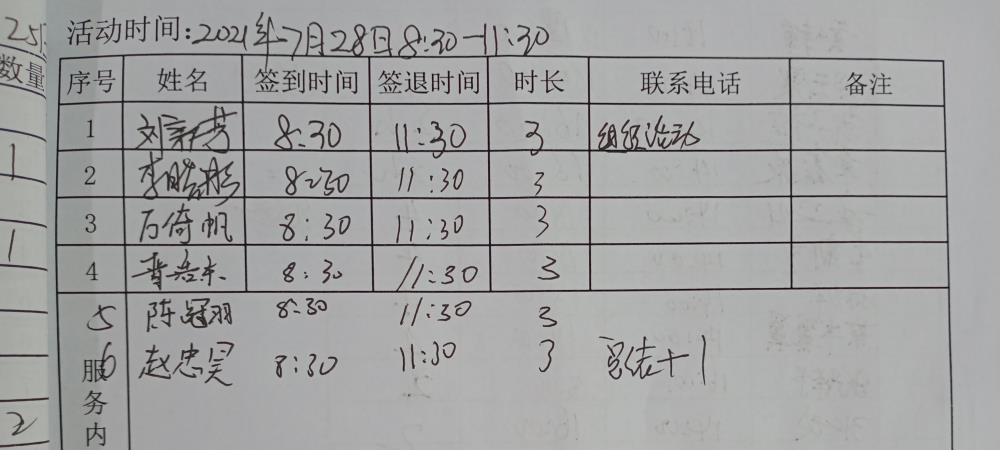 25
数量
1
1
2
活动时间:2021年7月28日8:30-11:30
序号 姓名 签到时间 签退时间 时长 联系电话 备注
1 刘 芳 8:30 11:30 3 组织活动
2 李 8:30 11:30 3
3 万倚帆 8:30 11:30 3
4 8:30 11:30 3
5 陈冠羽 8:30 11:30 3
6 赵忠昊 8:30 11:30 3 总结+1
服务内